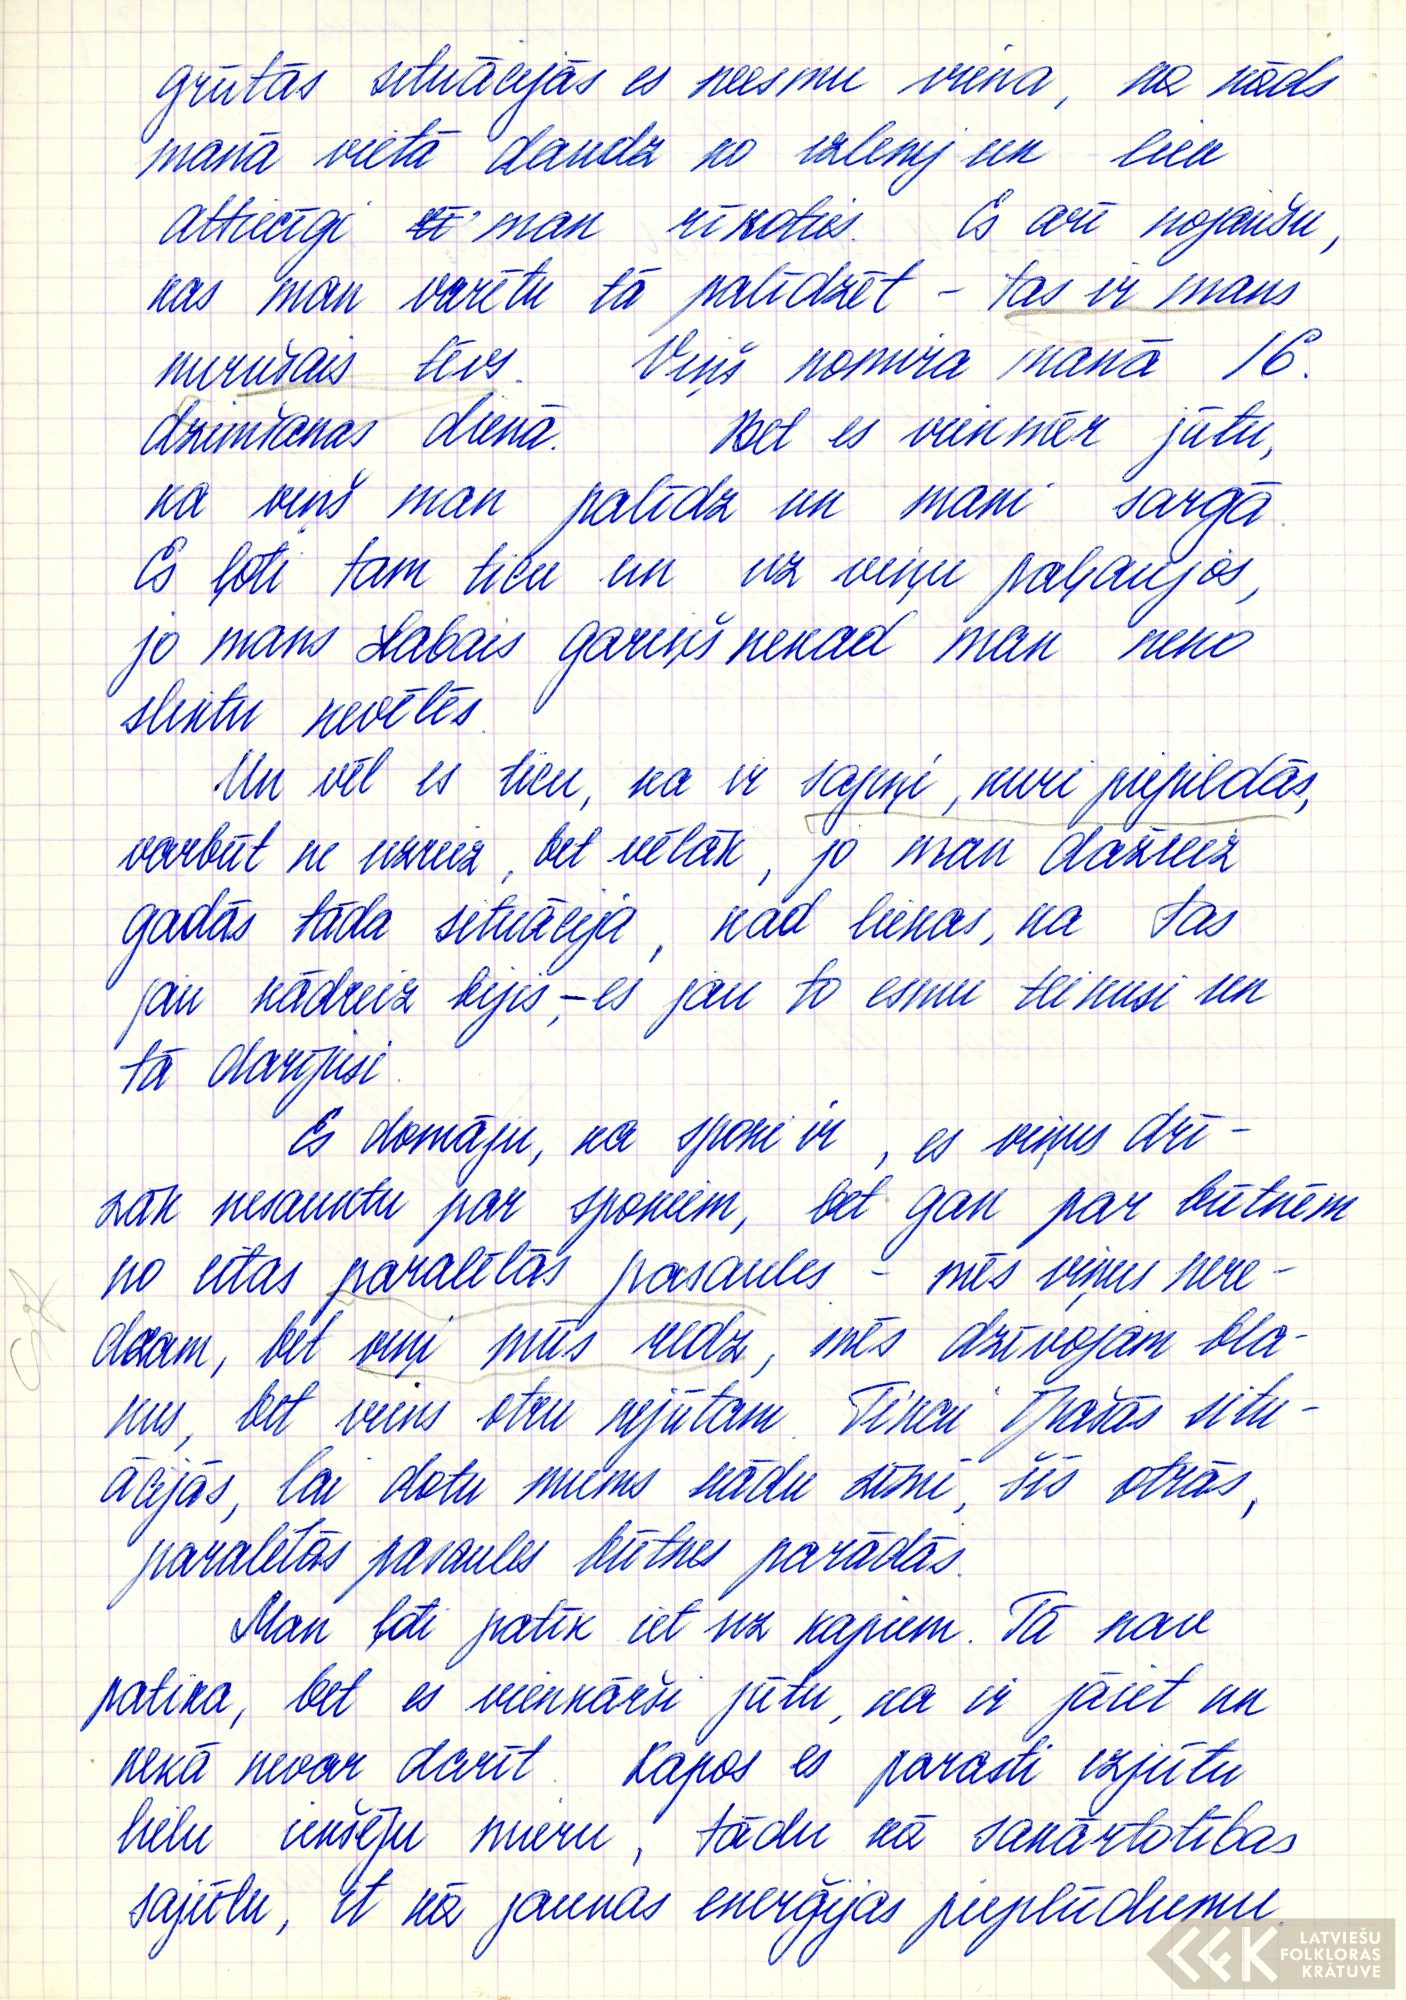 grūtās situācijās es neesmu viena, ka kāds
manā vietā daudz ko izlemj un liek
attiecīgi man rīkoties. Es arī nojaušu,
kas man varētu tā palīdzēt – tas ir mans
mirušais tēvs. Viņš nomira manā 16.
dzimšanas dienā. Bet es vienmēr jūtu,
ka viņš man palīdz un mani sargā.
Es ļoti tam ticu un uz viņu paļaujos,
jo mans labais gariņš nekad man neko
sliktu nevēlēs.
Un vēl es ticu, ka ir sapņi, kuri piepildās,
varbūt ne uzreiz, bet vēlāk, jo man dažreiz
gadās tāda situācija, kad liekas, ka tas
jau kādreiz bijis, – es jau to esmu teikusi un
tā darījusi.
Es domāju, ka spoki ir, es viņus drī-
zāk nesauktu par spokiem, bet gan par būtnēm
no citas paralēlās pasaules – mēs viņus nere-
dzam, bet viņi mūs redz, mēs dzīvojam bla-
kus, bet viens otru nejūtam. Tikai īpašās situ-
ācijās, lai dotu mums kādu zīmi, šīs otrās,
paralēlās pasaules būtnes parādās.
Man ļoti patīk iet uz kapiem. Tā nav
patika, bet es vienkārši jūtu, ka ir jāiet un
nekā nevar darīt. Kapos es parasti izjūtu
lielu iekšēju mieru, tādu kā sakārtotības
sajūtu, it kā jaunas enerģijas pieplūdumu.
LATVIEŠU
FOLKLORAS
KRĀTUVE